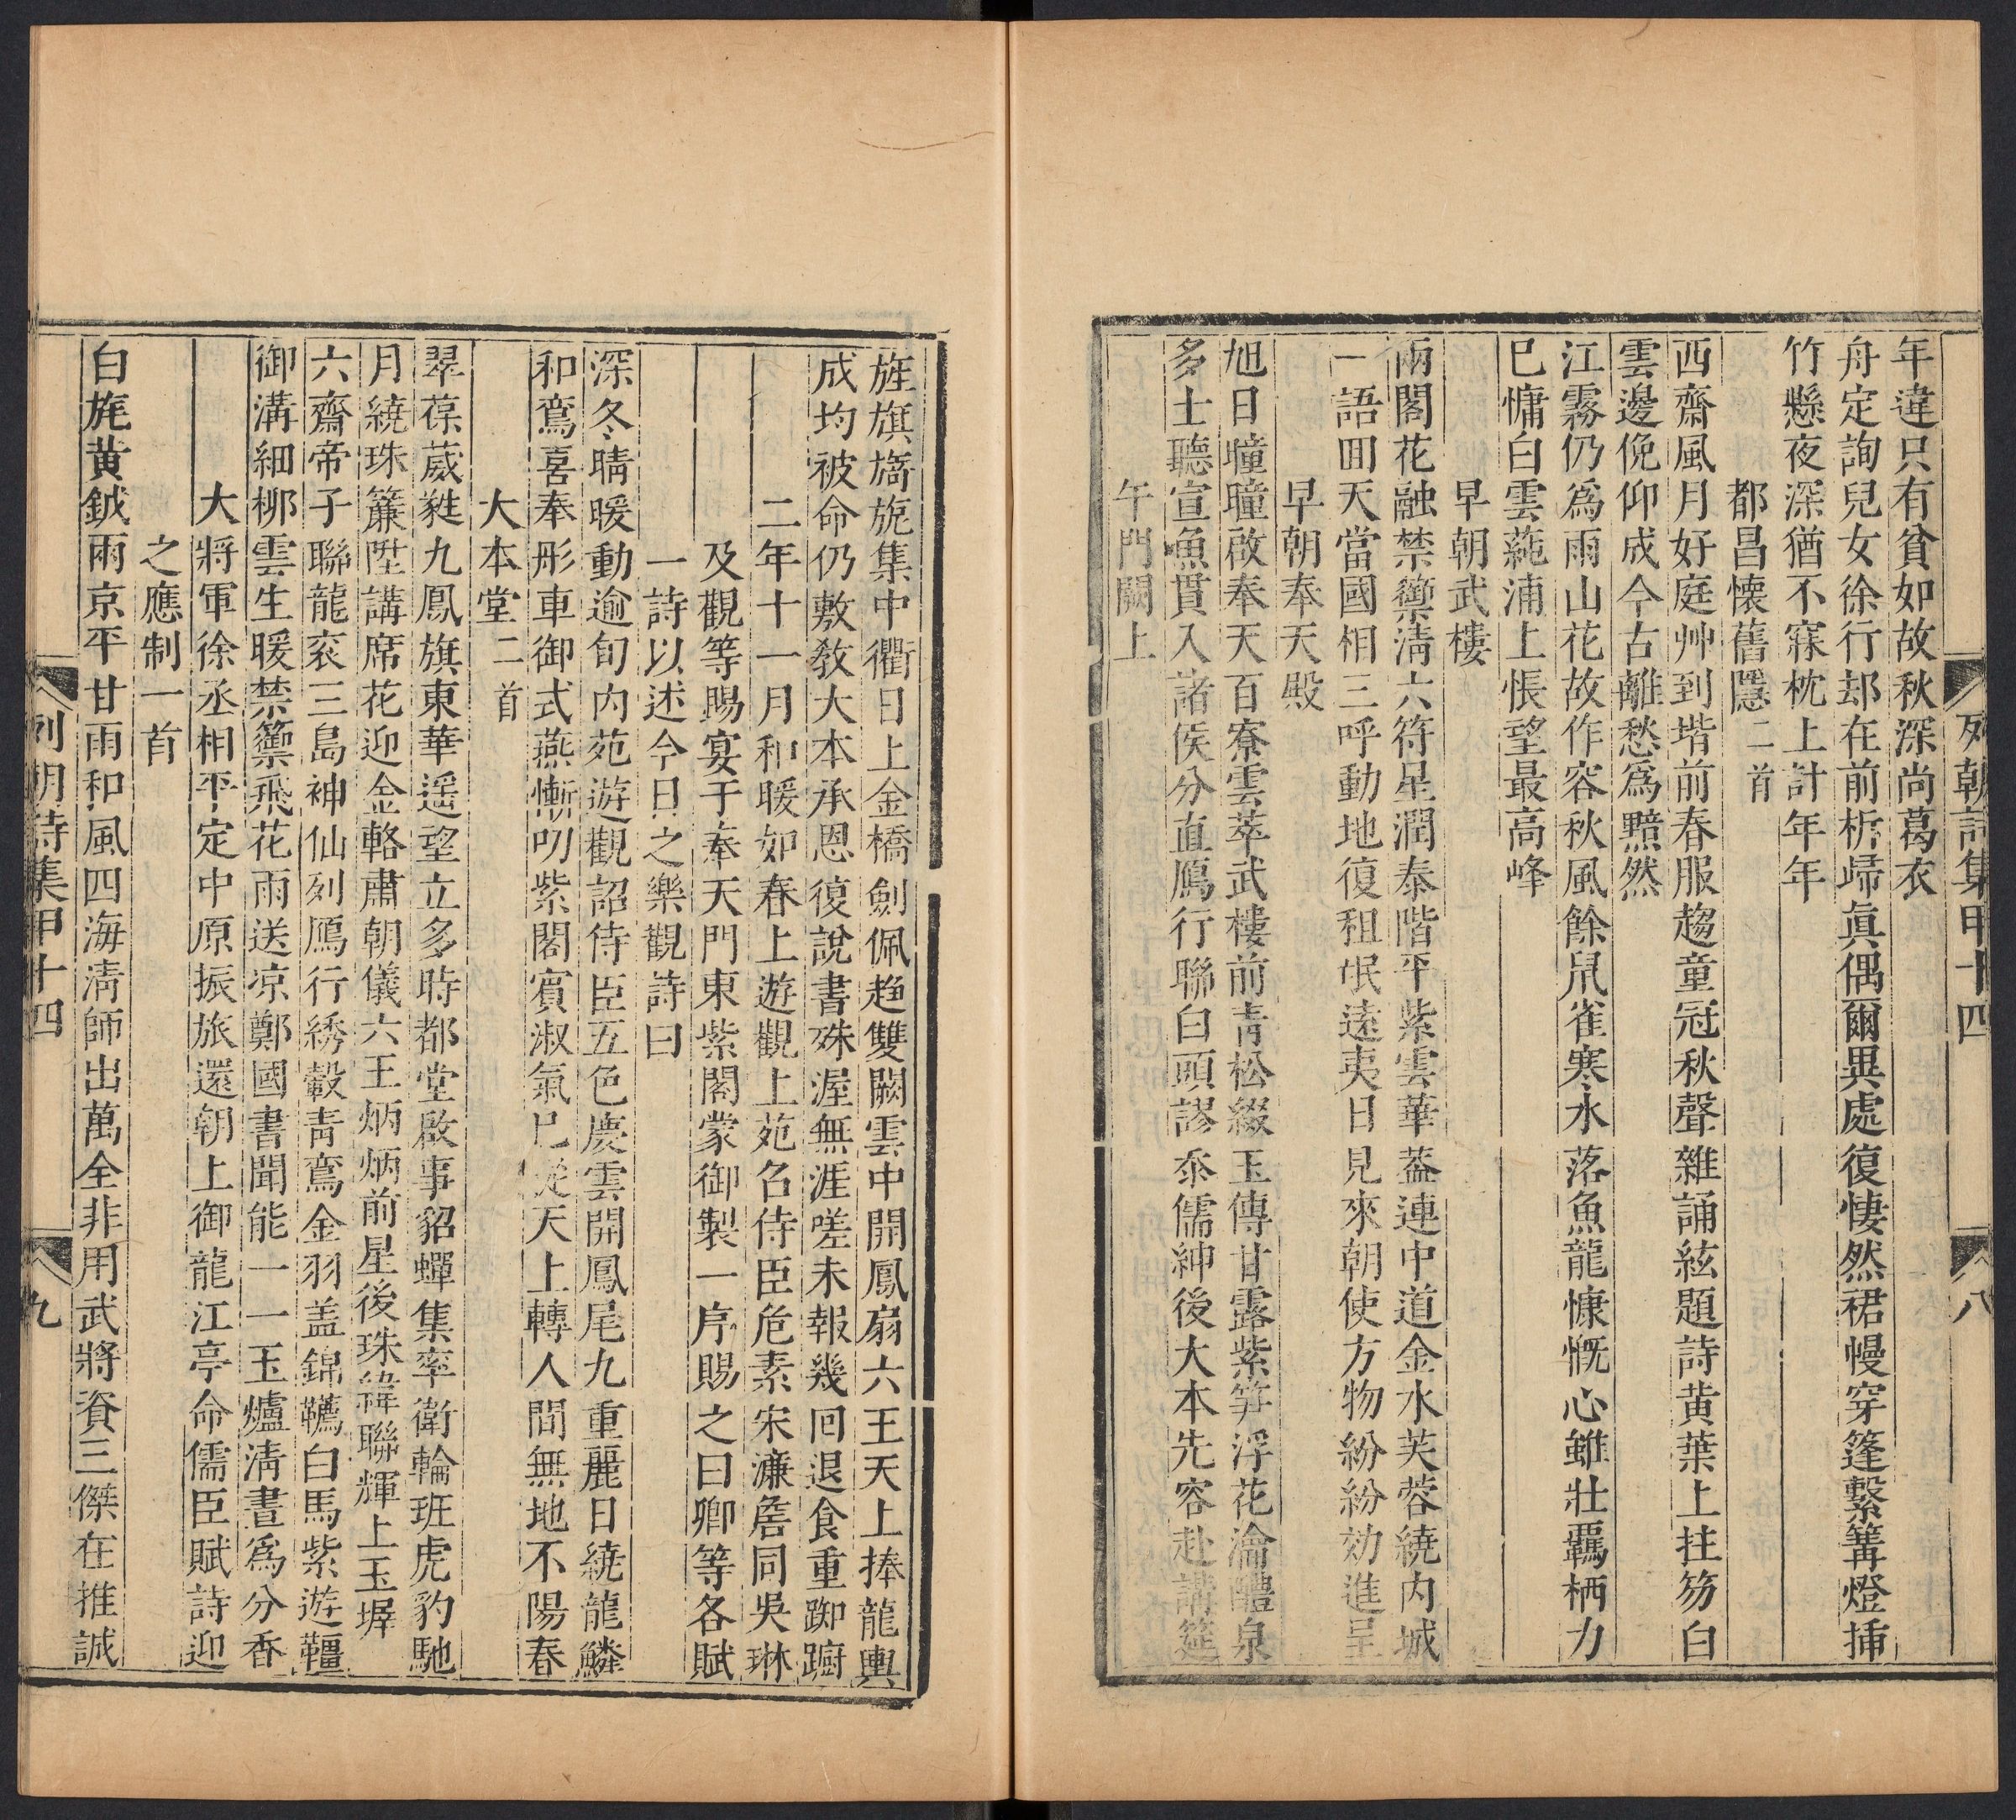 列朝詩集甲十四
八
年違只有貧如故秋深尚葛衣
舟定詢兒女徐行却在前㭊歸眞偶爾異處復悽然裙幔穿篷繫篝燈揷
竹懸夜深猶不寐枕上計年年
都昌懷舊隱二首
西齋風月好庭艸到堦前春服趨童冠秋聲雜誦絃題詩黄葉上拄笏白
雲邊俛仰成今古離愁爲黯然
江霧仍爲雨山花故作容秋風餘鼠雀寒水落魚龍慷慨心雖壯羈栖力
巳慵白雲蒓浦上悵望最高峰
早朝武樓
兩閣花融禁籞淸六符星潤泰階平紫雲華葢連中道金水芙蓉繞内城
一語囬天當國相三呼動地復租氓遠夷日見來朝使方物紛紛効進呈
早朝奉天殿
旭日曈曈啟奉天百寮雲萃武樓前靑松綴玉傳甘露紫笋浮花淪醴泉
多士聽宣魚貫入諸侯分直鴈行聯白頭謬忝儒紳後大本先容赴講筵
午門闕上
旌旗旖旎集中衢日上金橋劍佩趋雙闕雲中開鳳扇六王天上捧龍輿
成均被命仍敷敎大本承恩復說書殊渥無涯嗟未報幾回退食重踟躕
二年十一月和暖如春上遊觀上苑召侍臣危素宋濂詹同吳琳
及觀等賜宴于奉天門東紫閣蒙御製一序賜之曰卿等各賦
一詩以述今日之樂觀詩曰
深冬晴暖動逾旬内苑遊觀詔侍臣五色慶雲開鳳尾九重麗日繞龍鱗
和鸞喜奉彤車御式燕慚叨紫閣賓淑氣巳從天上轉人間無地不陽春
大本堂二首
翠葆葳蕤九鳳旗東華遥望立多時都堂啟事貂蟬集率衛輪班虎豹馳
月繞珠簾陞講席花迎金輅肅朝儀六王炳炳前星後珠緯聯輝上玉墀
六齋帝子聯龍衮三島神仙列鴈行綉轂靑鸞金羽盖錦韉白馬紫遊韁
御溝細柳雲生暖禁籞飛花雨送凉鄭國書聞能一一玉爐淸晝爲分香
大將軍徐丞相平定中原振旅還朝上御龍江亭命儒臣賦詩迎
之應制一首
白旄黄鉞兩京平甘雨和風四海淸師出萬全非用武將資三傑在推誠
列朝詩集甲十四
九